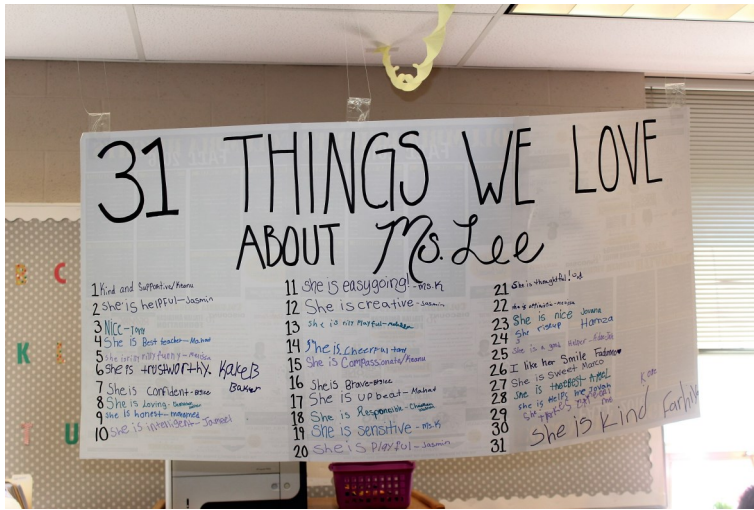 31 THINGS WE LOVE
ABOUT Ms. Lee
1 Kind and Supportive/Keanu
2 she is helpful - Jasmin
3 NICE - Tony
4 She is Best teacher - Mahad
5 she is really funny -
6 She is trustworthy. Kaleb
Baker
7 She is confident - Brice
8 She is Loving -
9 she is honest - mohamed
10 She is intelligent - Jameel
11 She is easygoing! - Ms. K
12 She is creative - Jasmin
13 she is playful -
14 She is cheerful tony
15 She is Compassionate/Keanu
16 She is Brave - Brice
17 She is upbeat - Mahad
18 She is Responsible -
19 She is sensitive - Ms. K
20 She is Playful - Jasmin
21 She is thoughtful!
22 she is optimistic -
23 She is nice Jovana
24 She Hamza
25 She is a good Helper -
26 I like her Smile
27 She is sweet Marco
28 she is
29 she is Helps me
30 She
31 She is kind
B C
K
T U